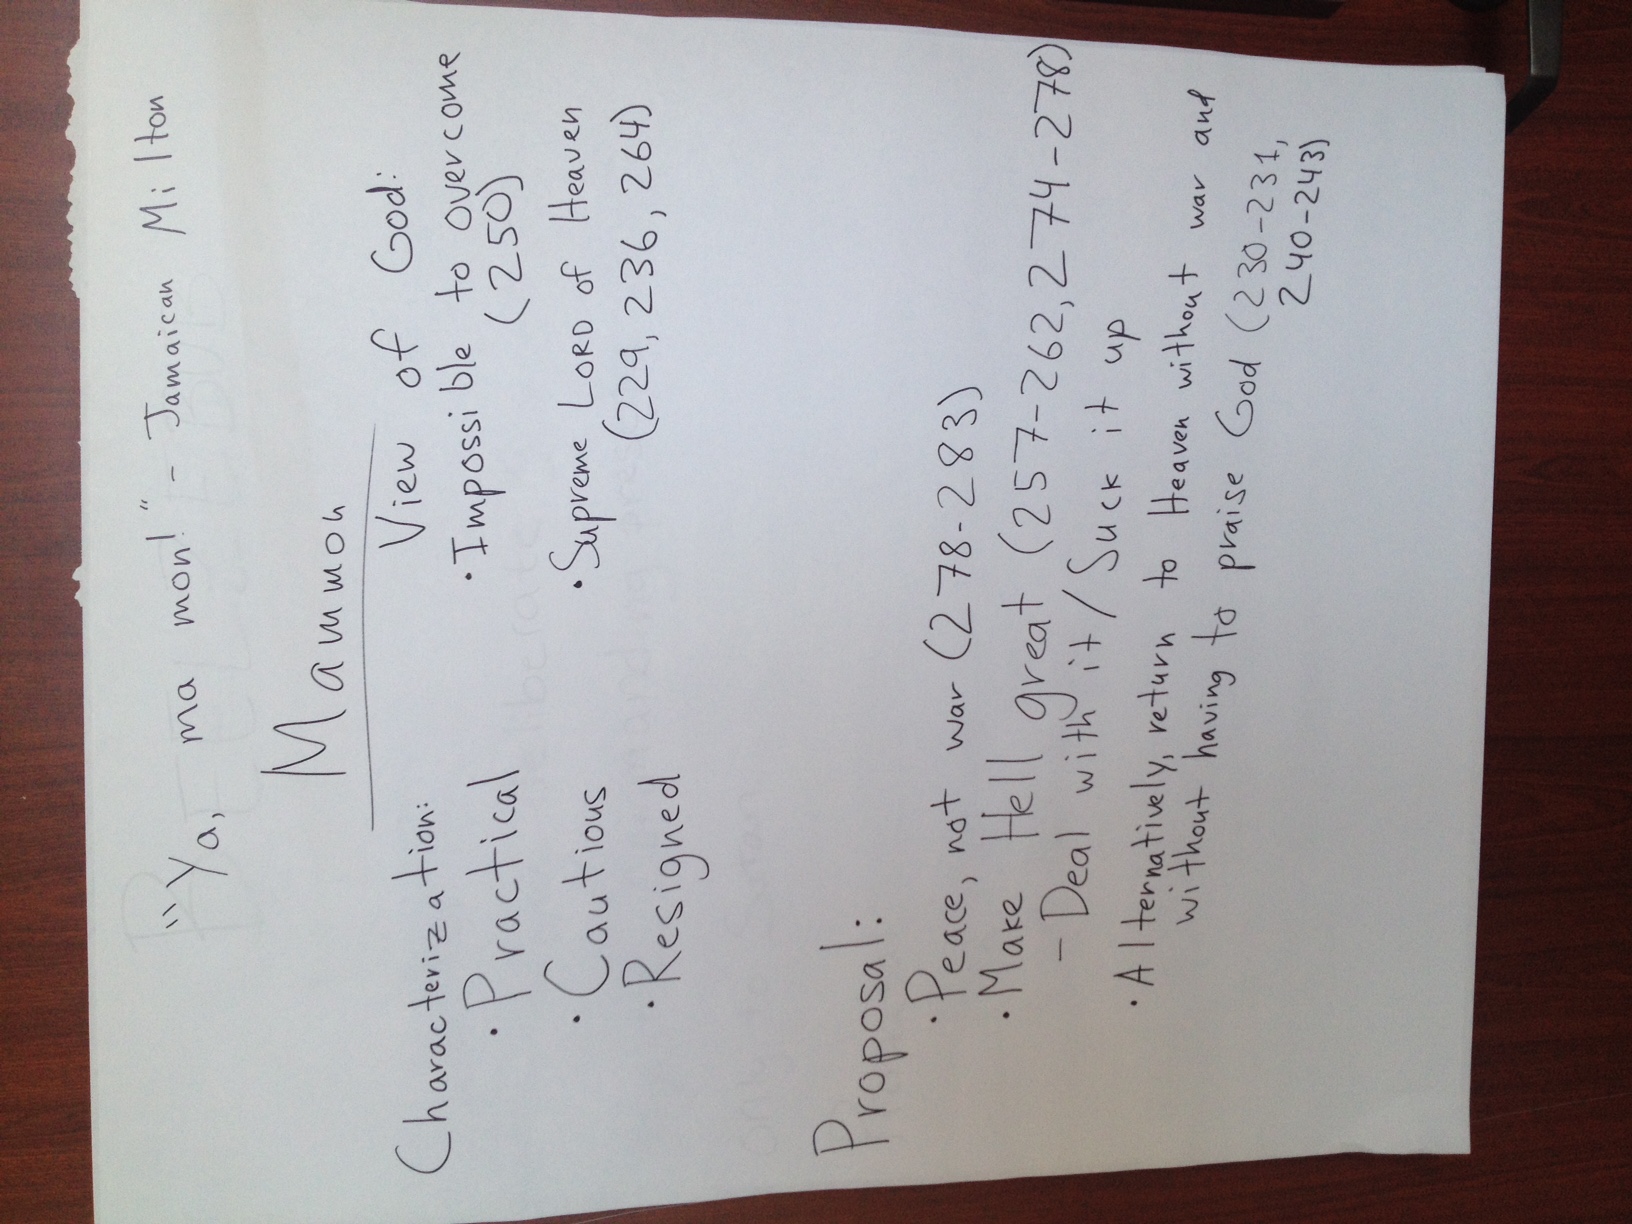 "Ya, ma mon!" - Jamaican Milton
Mammon
Characterization:
• Practical
• Cautious
• Resigned
View of God:
• Impossible to overcome
(250)
• Supreme LORD of Heaven
(229, 236, 264)
Proposal:
• Peace, not war (278-283)
• Make Hell great (257-262, 274-278)
- Deal with it / Suck it up
• Alternatively, return to Heaven without war and
without having to praise God (230-231,
240-243)